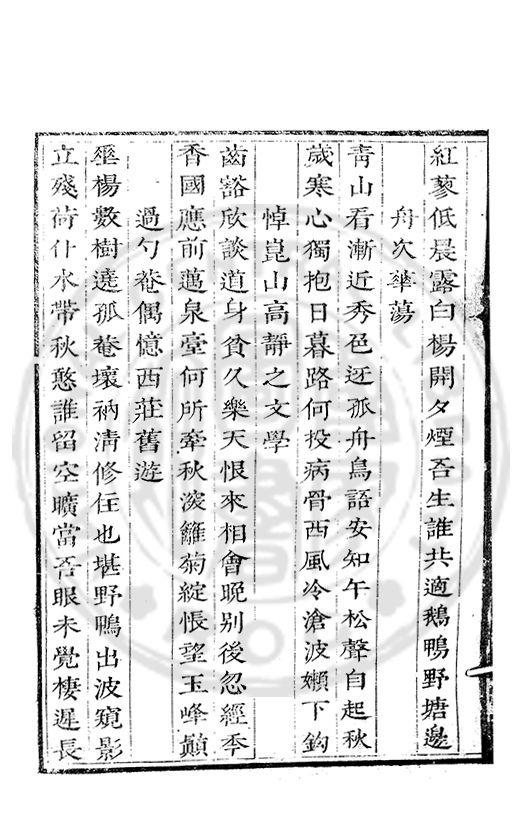 紅蓼低晨露白楊開夕煙吾生誰共適鵝鴨野塘邊
舟次華蕩
青山看漸近秀色迓孤舟鳥語安知午松聲自起秋
歲寒心獨抱日暮路何投病骨西風冷滄波嬾下鈎
悼崑山高靜之文學
齒豁欣談道身貧久樂天恨來相會晚別後忽經年
香國應前邁泉臺何所牽秋深籬菊綻悵望玉峰巔
過勺菴偶憶西莊舊遊
垂楊數樹遶孤菴壞衲清修任也堪野鴨出波窺影
立殘荷什水帶秋憨誰留空曠當吾眼未覺棲遲長